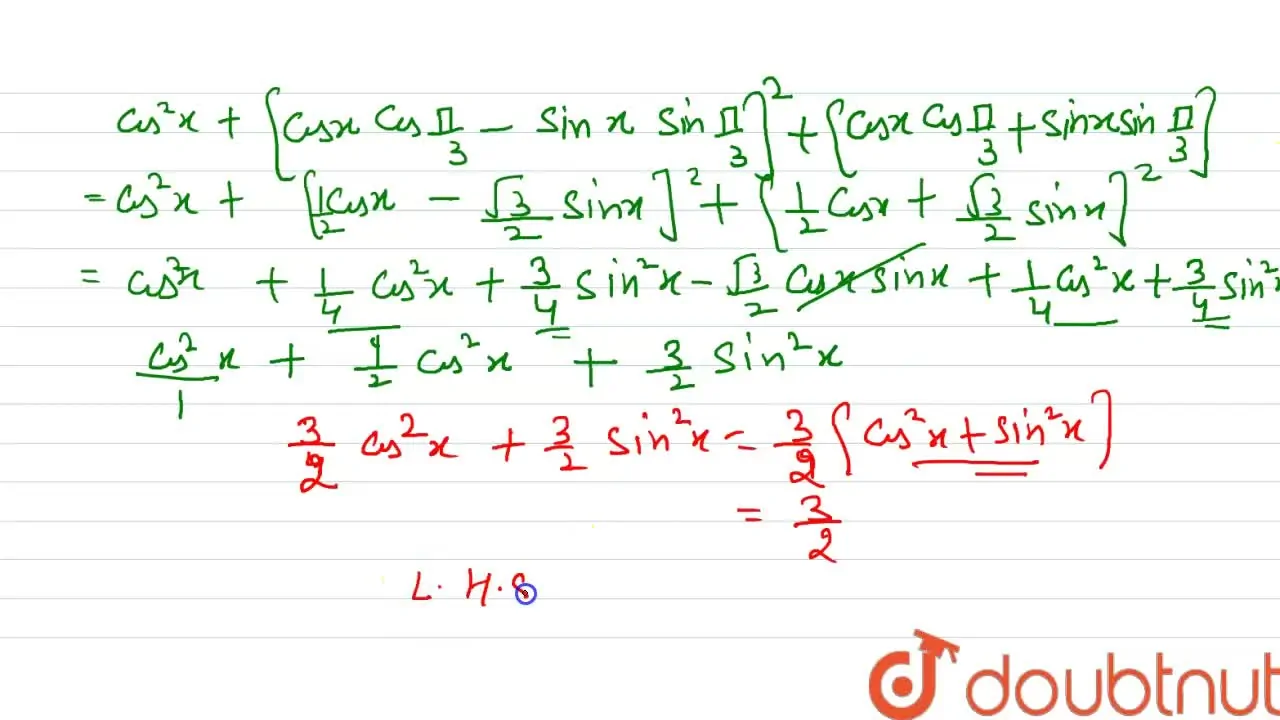 cos²x + [cosx cos π/3 - sin x sin π/3]² + [cosx cos π/3 + sinx sin π/3]
= cos²x + [1/2 cosx - √3/2 sinx]² + [1/2 cosx + √3/2 sinx]²
= cos²x + 1/4 cos²x + 3/4 sin²x - √3/2 cosx sinx + 1/4 cos²x + 3/4 sin²x
cos²x/1 + 1/2 cos²x + 3/2 sin²x
3/2 cos²x + 3/2 sin²x = 3/2 [cos²x + sin²x]
= 3/2
L. H. S
doubtnut